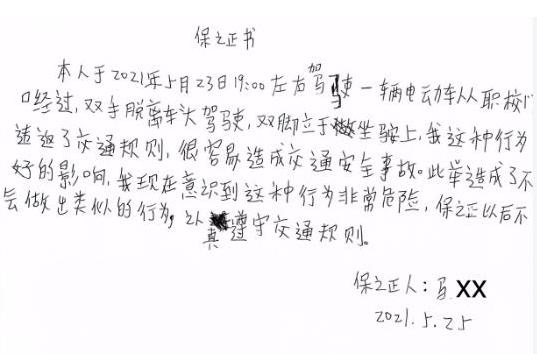 保证书
本人于2021年5月23日19:00左右驾驶一辆电动车从职校门
口经过,双手脱离车头驾驶,双脚立于坐鞍上,我这种行为
违返了交通规则,很容易造成交通安全事故。此举造成了不
好的影响,我现在意识到这种行为非常危险,保证以后不
会做出类似的行为,认
真遵守交通规则。
保证人:马XX
2021.5.25